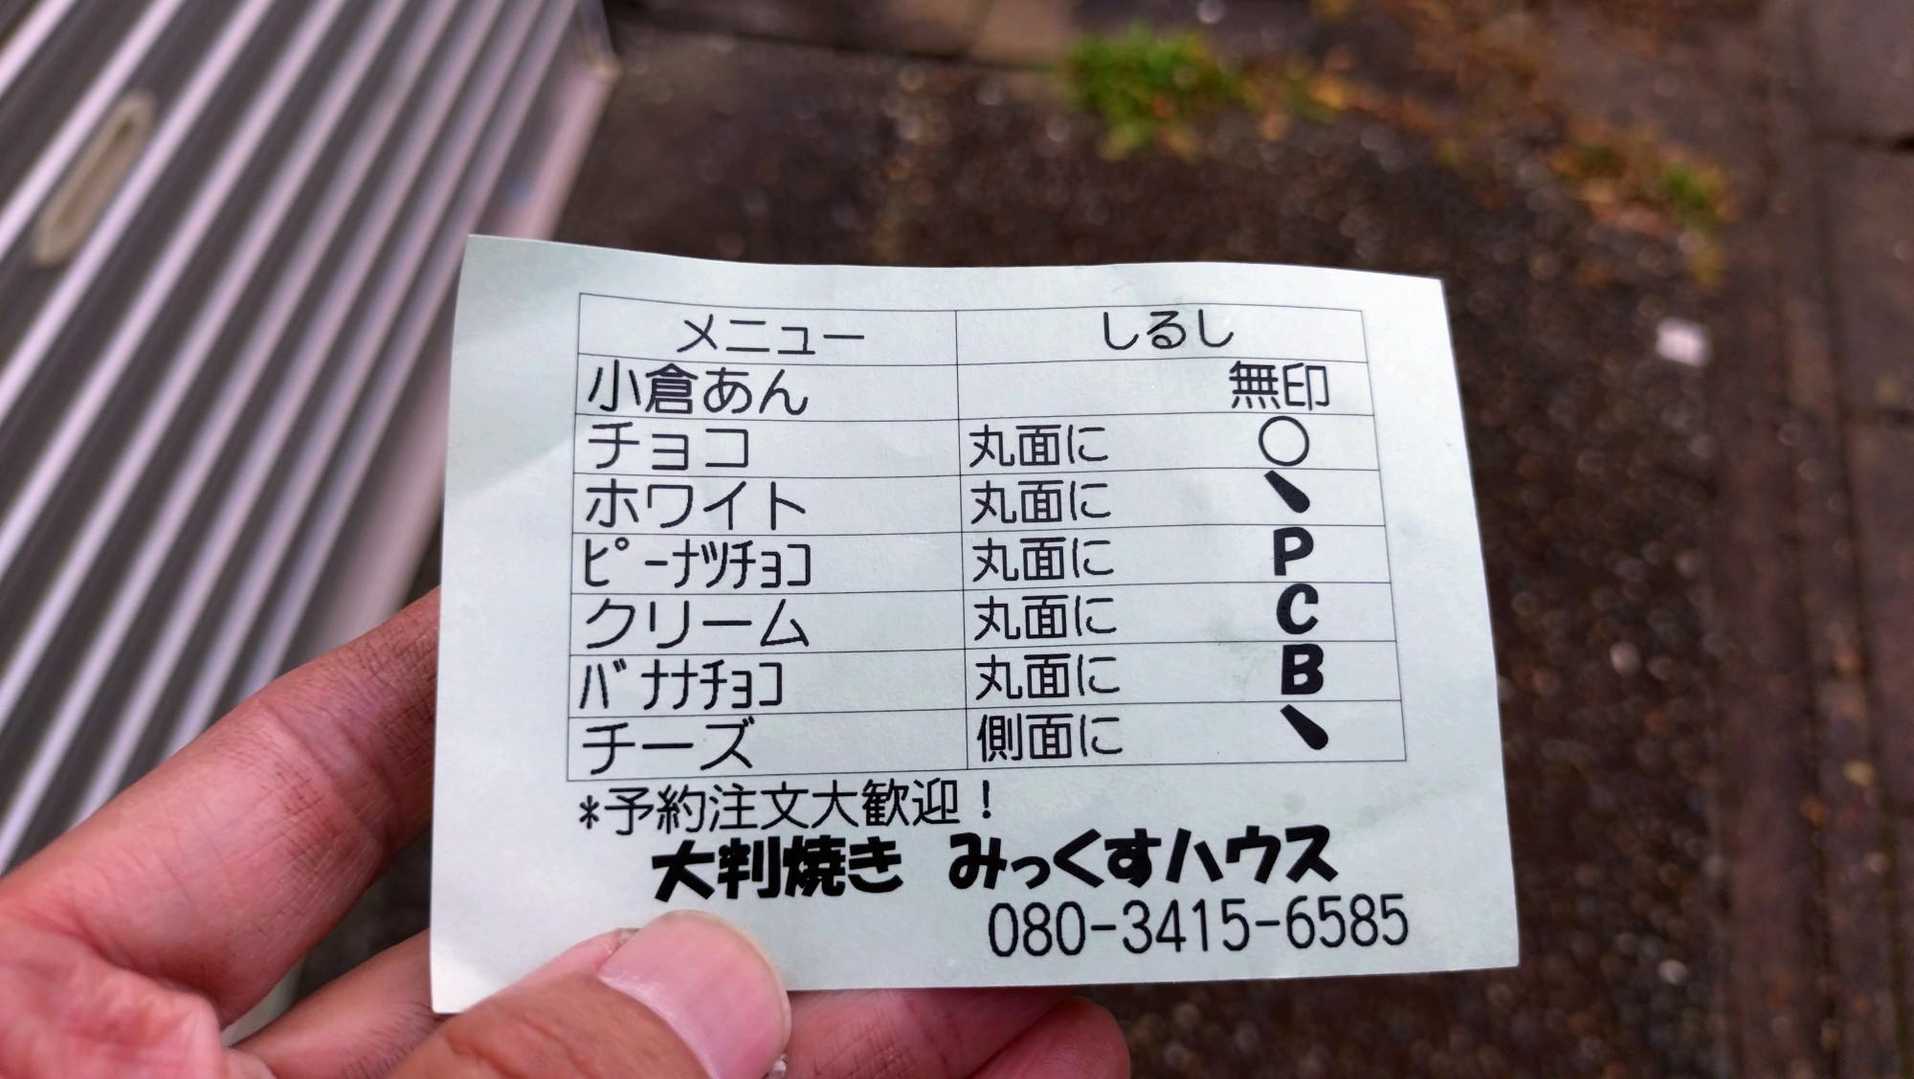 メニュー しるし
小倉あん 無印
チョコ 丸面に ○
ホワイト 丸面に ﹅
ﾋﾟｰﾅﾂﾁｮｺ 丸面に P
クリーム 丸面に C
ﾊﾞﾅﾅﾁｮｺ 丸面に B
チーズ 側面に ﹅
*予約注文大歓迎！
大判焼き みっくすハウス
080-3415-6585